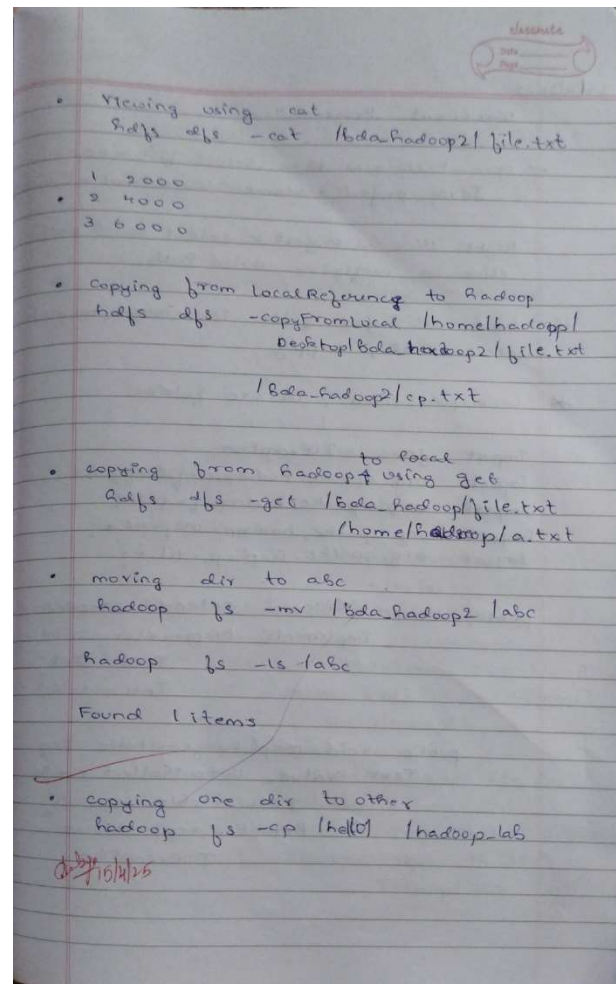 classmate
Date
Page
• Viewing using cat
hdfs dfs -cat /bda_hadoop2/file.txt
1 2000
• 2 4000
3 6000
• copying from local to hadoop
hdfs dfs -copyFromLocal /home/hadopp/
Desktop/bda_hadoop2/file.txt
/bda_hadoop2/cp.txt
to local
• copying from hadoop using get
hdfs dfs -get /bda_hadoop/file.txt
/home/hadoop/a.txt
• moving dir to abc
hadoop fs -mv /bda_hadoop2 /abc
hadoop fs -ls /abc
Found 1 items
• copying one dir to other
hadoop fs -cp /hello /hadoop_lab
15/4/25